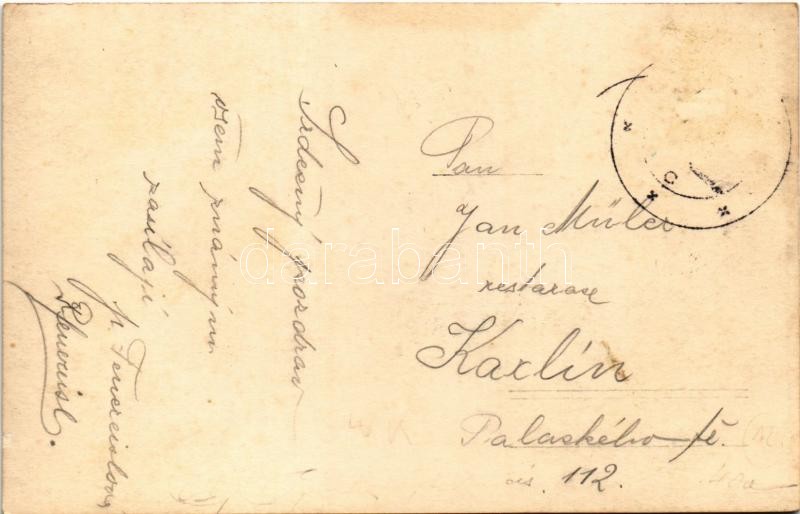 Srdečný pozdrav
všem známým
zasílají
Pan
Jan Müler
restarace
Karlín
Palaského tř.
čís. 112.
C
darabanth